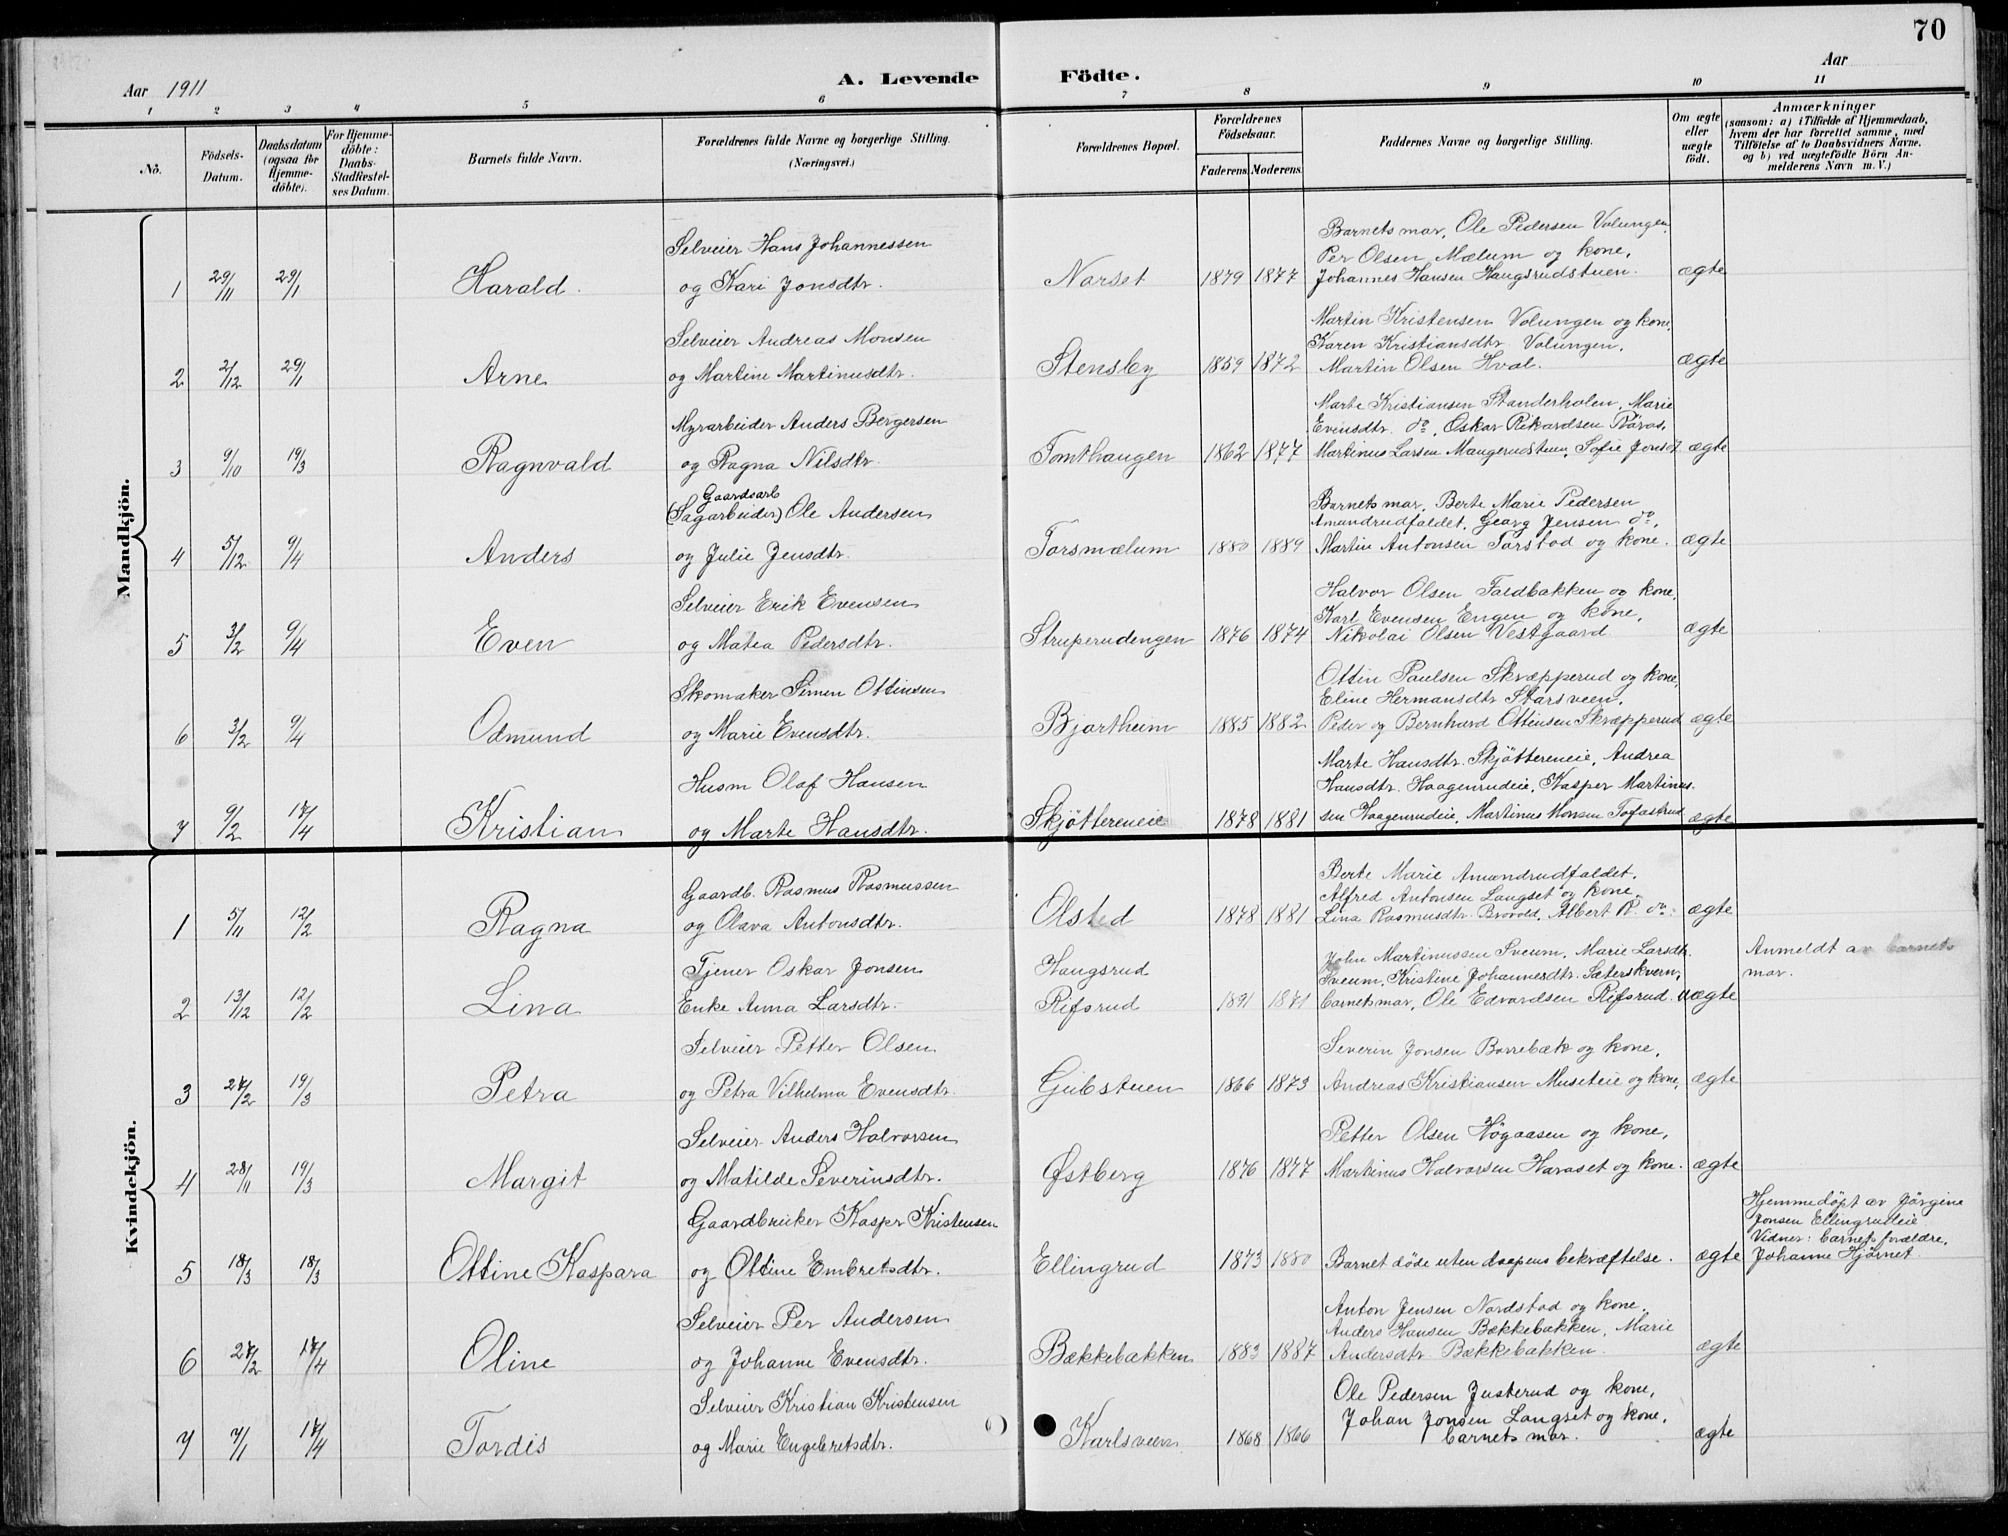 70
Aar 1911
A. Levende Födte.
Aar
1 2 3 4 5 6 7 8 9 10 11
No.
Födsels-Datum.
Daabsdatum (ogsaa for Hjemmedöbte).
For Hjemmedöbte: Daabs-Stadfæstelses Datum.
Barnets fulde Navn.
Forældrenes fulde Navne og borgerlige Stilling. (Næringsvei.)
Forældrenes Bopæl.
Forældrenes Födselsaar.
Faderens. Moderens.
Faddernes Navne og borgerlige Stilling.
Om ægte eller uægte födt.
Anmærkninger
(saasom: a) i Tilfælde af Hjemmedaab, hvem der har forrettet samme, med Tilföielse af to Daabsvidners Navne. og b) ved uægtefödte Börn Anmelderens Navn m. V.)
Mandkjön.
Selveier Hans Johannessen
Barnets mor, Ole Pedersen Volungen,
Per Olsen Mælum og kone,
1 29/11 29/1 Harald. og Kari Jonsdtr. Norset 1879 1877 Johannes Hansen Haugsrudstuen. ægte
Selveier Andreas Monsen
Martin Kristensen Volungen og kone,
Karen Kristiansdtr Volungen,
2 2/12 29/1 Arne og Martine Martinusdtr. Stensby 1859 1872 Martin Olsen Hval. ægte
Myrarbeider Anders Bergersen
Marte Kristiansen Standerholen, Marie
Evensdtr. do, Oskar Rikardsen Røros,
3 9/10 19/3 Ragnvald og Ragna Nilsdtr. Tomthaugen 1862 1877 Martinus Larsen Maugerudstuen, Sofie Jonsd. ægte
Gaardsarb
(Sagarbeider) Ole Andersen
Barnets mor, Berte Marie Pedersen
Amundrudfaldet, Georg Jensen do,
4 5/12 9/4 Anders og Julie Jensdtr. Torsmælum 1880 1889 Martin Antonsen Torstad og kone. ægte
Selveier Erik Evensen
Halvor Olsen Faldbakken og kone,
Karl Evensen Engen og kone,
5 3/2 9/4 Even og Matea Pedersdtr. Struperudengen 1876 1874 Nikolai Olsen Vestgaard. ægte
Skomaker Simen Ottinsen
Ottin Paulsen Skræpperud og kone,
Eline Hermansdtr Storsveen,
6 3/2 9/4 Odmund og Marie Evensdtr. Bjartheim 1885 1882 Peder og Bernhard Ottinsen Skræpperud ægte
Husm Olaf Hansen
Marte Hansdtr. Skjøttereneie, Andrea
Hansdtr. Haagenrudeie, Kasper Martinus-
7 9/2 17/4 Kristian og Marte Hansdtr. Skjøttereneie 1878 1881 sen Haagenrudeie, Martinus Monsen Tofastrud ægte
Kvindekjön.
Gaardb. Rasmus Rasmussen
Berte Marie Amundrudfaldet,
Alfred Antonsen Langset og kone,
1 5/11 12/2 Ragna og Olava Antonsdtr. Olsted 1878 1881 Lina Rasmusdtr. Brovold, Albert R. do. ægte
Tjener Oskar Jonsen Haugsrud
John Martinussen Sveum, Marie Larsdtr.
Sveum, Kristine Johannesdtr. Sæterskvern,
Anmeldt av barnets
mor.
2 13/12 12/2 Lina Enke Anna Larsdtr. Rifsrud 1891 1871 barnets mor, Ole Edvardsen Rifsrud. uægte
Selveier Petter Olsen
Severin Jonsen Borrebæk og kone,
3 27/2 19/3 Petra og Petra Vilhelma Evensdtr. Gubstuen 1866 1873 Andreas Kristiansen Museteie og kone, ægte
Selveier Anders Halvorsen
Petter Olsen Høgaasen og kone,
4 28/11 19/3 Margit og Matilde Severinsdtr. Østberg 1876 1877 Martinus Halvorsen Haraset og kone. ægte
Gaardbruker Kasper Kristensen
Hjemmedøpt av Jørgine
Jonsen Ellingrudeie.
Vidner: barnets forældre,
5 18/3 18/3 Ottine Kaspara og Ottine Embretsdtr. Ellingrud 1873 1880 Barnet døde uten daapens bekræftelse. ægte Johanne Hjørnet.
Selveier Per Andersen
Anton Jensen Nordstad og kone,
Anders Hansen Bækkebakken, Marie
6 27/2 17/4 Oline og Johanne Evensdtr. Bækkebakken 1883 1887 Andersdtr. Bækkebakken. ægte
Selveier Kristian Kristensen
Ole Pedersen Justerud og kone,
Johan Jonsen Langset og kone,
7 7/1 17/4 Tordis og Marie Engebretsdtr. Karlsveen 1868 1866 barnets mor. ægte